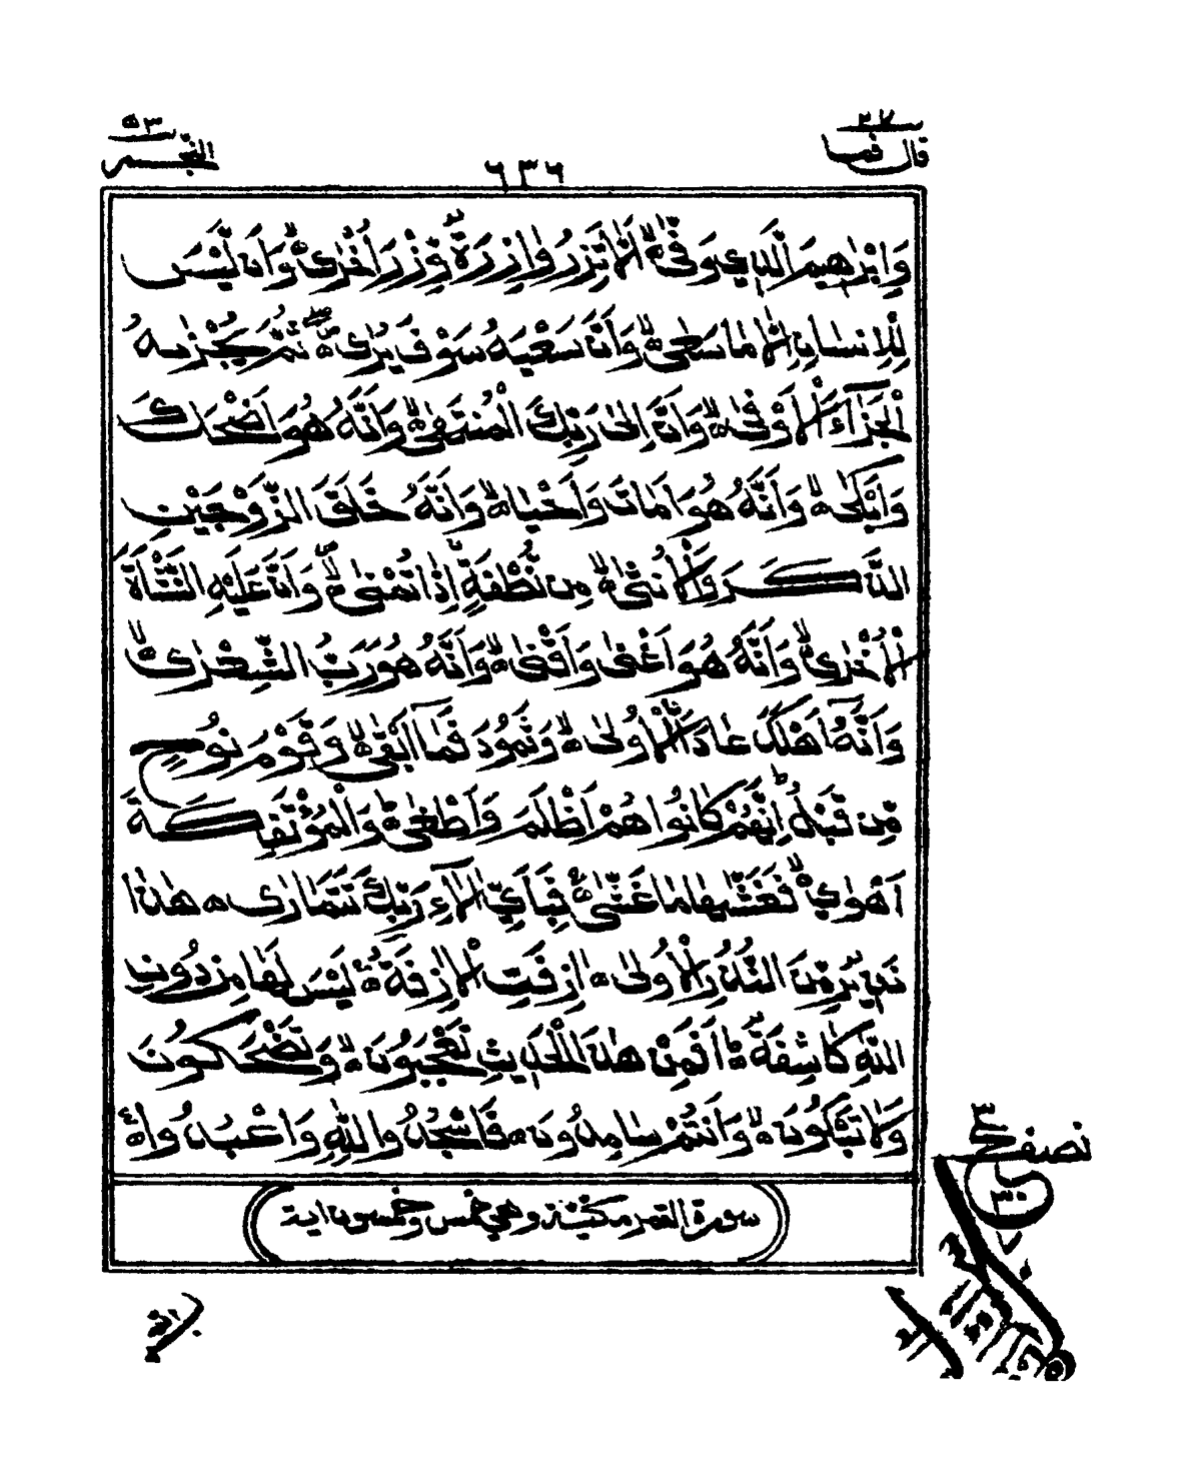 ٢٧
قال فما
٦٣٦
٥٣
النجم
وَاِبْرٰهِيْمَ الَّذِيْ وَفّٰىۤ ۙ اَلَّا تَزِرُ وَازِرَةٌ وِّزْرَ اُخْرٰى ۙ وَاَنْ لَّيْسَ
لِلْاِنْسَانِ اِلَّا مَا سَعٰى ۙ وَاَنَّ سَعْيَهٗ سَوْفَ يُرٰى ۪ ثُمَّ يُجْزٰىهُ
الْجَزَآءَ الْاَوْفٰى ۙ وَاَنَّ اِلٰى رَبِّكَ الْمُنْتَهٰى ۙ وَاَنَّهٗ هُوَ اَضْحَكَ
وَاَبْكٰى ۙ وَاَنَّهٗ هُوَ اَمَاتَ وَاَحْيَا ۙ وَاَنَّهٗ خَلَقَ الزَّوْجَيْنِ
الذَّكَرَ وَالْاُنْثٰى ۙ مِنْ نُّطْفَةٍ اِذَا تُمْنٰى ۪ وَاَنَّ عَلَيْهِ النَّشْاَةَ
الْاُخْرٰى ۙ وَاَنَّهٗ هُوَ اَغْنٰى وَاَقْنٰى ۙ وَاَنَّهٗ هُوَ رَبُّ الشِّعْرٰى ۙ
وَاَنَّهٗۤ اَهْلَكَ عَادَاۨ الْاُوْلٰى ۙ وَثَمُوْدَا فَمَاۤ اَبْقٰى ۙ وَقَوْمَ نُوْحٍ
مِّنْ قَبْلُ ؕ اِنَّهُمْ كَانُوْا هُمْ اَظْلَمَ وَاَطْغٰى ؕ وَالْمُؤْتَفِكَةَ
اَهْوٰى ۙ فَغَشّٰىهَا مَا غَشّٰى ۚ فَبِاَيِّ اٰلَآءِ رَبِّكَ تَتَمَارٰى ۝ هٰذَا
نَذِيْرٌ مِّنَ النُّذُرِ الْاُوْلٰى ۝ اَزِفَتِ الْاٰزِفَةُ ۚ لَيْسَ لَهَا مِنْ دُوْنِ
اللّٰهِ كَاشِفَةٌ ؕ اَفَمِنْ هٰذَا الْحَدِيْثِ تَعْجَبُوْنَ ۙ وَتَضْحَكُوْنَ
وَلَا تَبْكُوْنَ ۙ وَاَنْتُمْ سَامِدُوْنَ ۝ فَاسْجُدُوْا لِلّٰهِ وَاعْبُدُوْا ۩
سورة القمر مكية وهي خمس وخمسون اية